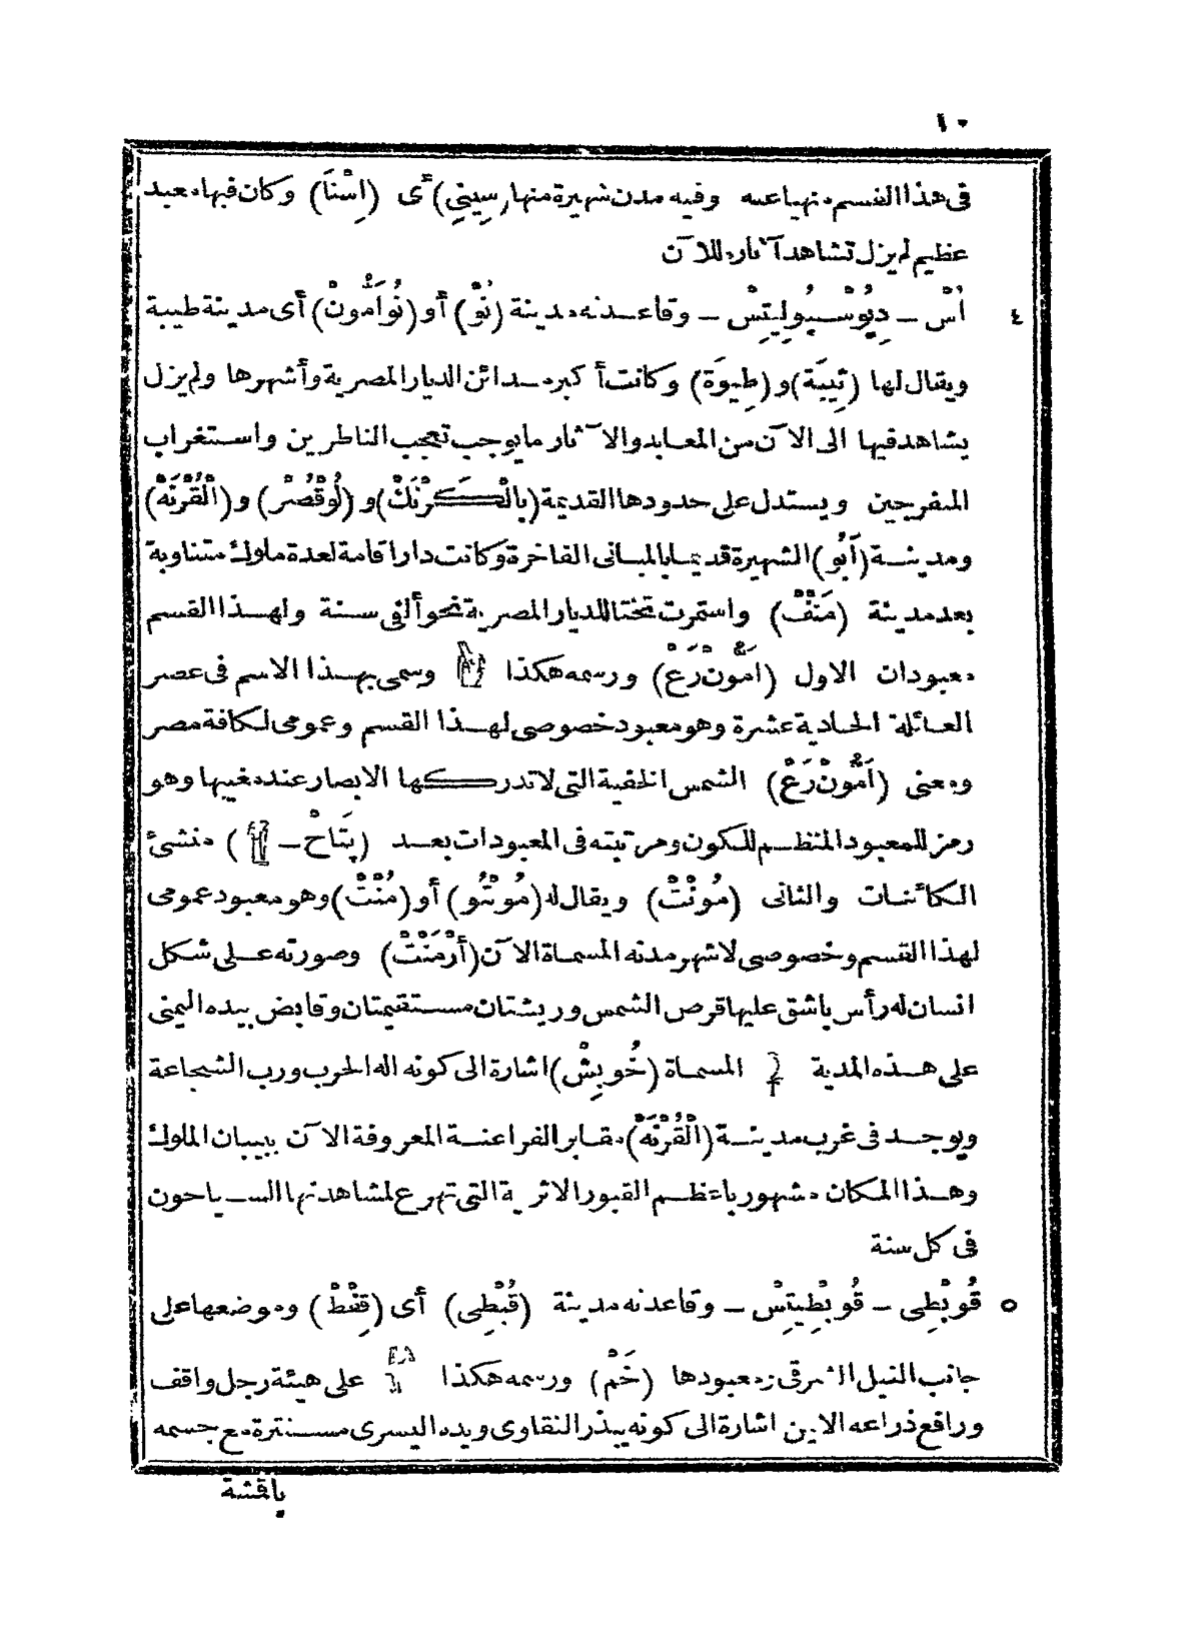 ١٠
فى هذا القسم وفيه مدن شهيرة منها (سِينِى) أى (اِسْنَا) وكان فيها معبد
عظيم لم يزل تشاهد آثاره للآن
٤ اُسْ ــ دِيُوْسْبُولِيتِسْ ــ وقاعدته مدينة (نُوْ) أو (نُوآمُونْ) أى مدينة طيبة
ويقال لها (تِيبَة) و (طِيوَة) وكانت أكبر مدائن الديار المصرية وأشهرها ولم يزل
يشاهد فيها الى الآن من المعابد والآثار ما يوجب تعجب الناظرين واستغراب
المتفرجين ويستدل على حدودها القديمة (بِالْكَرْنَكْ) و (لُوقْصُرْ) و (الْقُرْنَهْ)
ومدينة (آبُو) الشهيرة قديما بالمبانى الفاخرة وكانت دار اقامة لعدة ملوك متناوبة
بعد مدينة (مَنْفْ) واستمرت تختا للديار المصرية نحو ألفى سنة ولهذا القسم
معبودات الاول (اَمُّونْ رَعْ) ورسمه هكذا وسمى بهذا الاسم فى عصر
العائلة الحادية عشرة وهو معبود خصوصى لهذا القسم وعمومى لكافة مصر
ومعنى (اَمُّونْ رَعْ) الشمس الخفية التى لا تدركها الابصار عند مغيبها وهو
رمز للمعبود المنظم للكون ومرتبته فى المعبودات بعد (پتَاحْ ــ ) منشئ
الكائنات والثانى (مُونْتْ) ويقال له (مُونْتُو) أو (مُنْتْ) وهو معبود عمومى
لهذا القسم وخصوصى لاشهر مدنه المسماة الآن (أَرْمَنْتْ) وصورته على شكل
انسان له رأس باشق عليها قرص الشمس وريشتان مستقيمتان وقابض بيده اليمنى
على هذه المدية المسماة (خُوبِشْ) اشارة الى كونه اله الحرب ورب الشجاعة
ويوجد فى غرب مدينة (الْقُرْنَهْ) مقابر الفراعنة المعروفة الآن ببيبان الملوك
وهذا المكان مشهور باعظم القبور الاثرية التى تهرع لمشاهدتها السياحون
فى كل سنة
٥ قُوبْطِى ــ قُوبْطِيتِسْ ــ وقاعدته مدينة (قُبْطِى) أى (قِفْطْ) وموضعها على
جانب النيل الشرقى ومعبودها (خَمْ) ورسمه هكذا على هيئة رجل واقف
ورافع ذراعه الايمن اشارة الى كونه يبذر التقاوى ويده اليسرى مستترة مع جسمه
باقشة